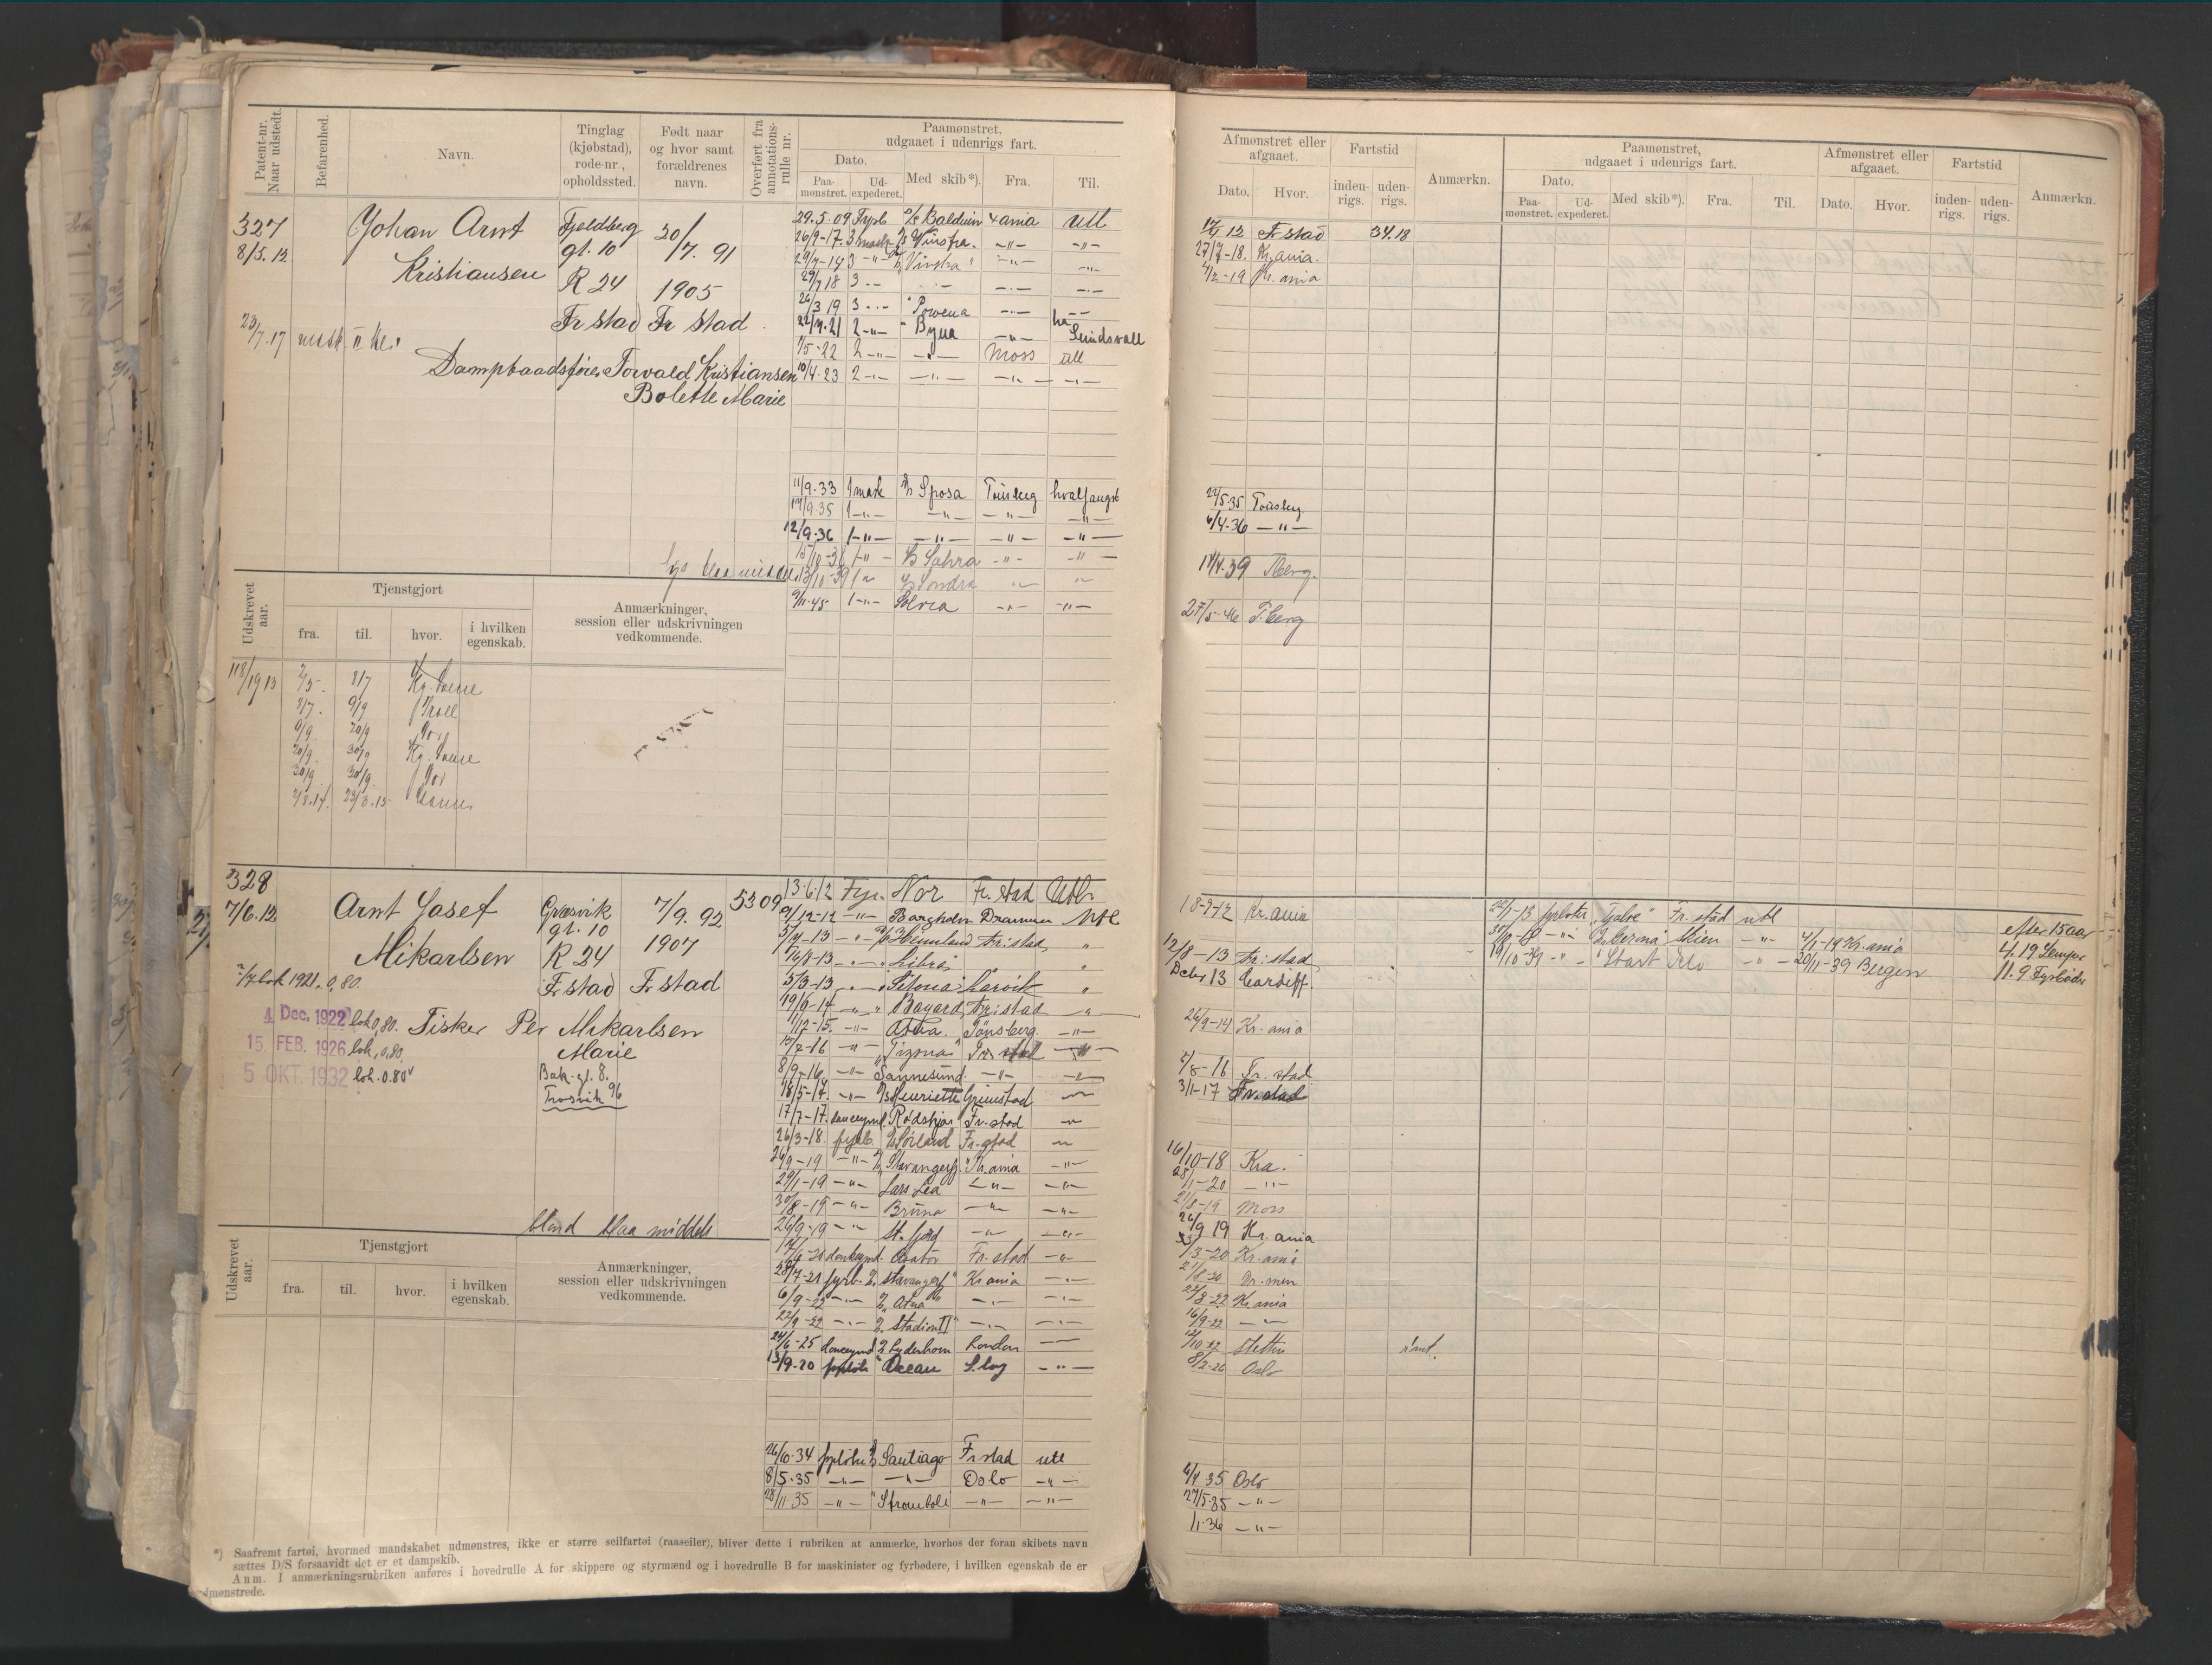 Patent-nr. Naar udstedt.
Befarenhed.
Navn.
Tinglag (kjøbstad), rode-nr., opholdssted.
Født naar og hvor samt forældrenes navn.
Overført fra annotations-rulle nr.
Paamønstret, udgaaet i udenrigs fart.
Dato.
Paa-mønstret.
Ud-expederet.
Med skib*).
Fra.
Til.
Afmønstret eller afgaaet.
Dato.
Hvor.
Fartstid
inden-rigs.
uden-rigs.
Anmærkn.
Paamønstret, udgaaet i udenrigs fart.
Dato.
Paa-mønstret.
Ud-expederet.
Med skib*).
Fra.
Til.
Afmønstret eller afgaaet.
Dato.
Hvor.
Fartstid
inden-rigs.
uden-rigs.
Anmærkn.
327
8/5.12
Johan Arnt
Kristiansen
Fjeldberg
gl. 10
R 24
Fr stad
20/7. 91
1905
Fr stad
23/7.17
Dampbaadsfører Torvald Kristiansen
Bolette Marie
29.5.09 Fyrb Balduin Kania utl
26/9-17. 3 mask Vinstra. -"- -"-
29/7-18 3 -"- Vinstra -"- -"-
29/7 18 3 -"-
26/3 19 3 -"- Rowena -"- -"-
22/4.21 2 -"- Byna -"- Sundsvall
1/5-22 2 -"- -"- Moss utl
10/4-23 2 -"- -"- -"- -"-
11/9-33 1 mask Sposa Tønsberg hvalfangst
19/9.35 1 -"- -"- -"- -"-
12/9-36 1 -"- -"- -"- -"-
15/10-38 1 -"- Sahra -"- -"-
13/10-39 1 Sondra
9/11-45 1 -"- -"- -"-
12 Fr stad 34.18
27/7-18. Kr.ania.
2-19 Kr. ania
22/5.35 Tønsberg
6/4-36 -"-
14/4.39 Tberg.
27/5-46 T.berg
Udskrevet aar.
Tjenstgjort
fra.
til.
hvor.
i hvilken egenskab.
Anmærkninger, session eller udskrivningen vedkommende.
118/1913
2/5. 8/7
8/7. 9/9
9/9. 20/9
20/9. 30/9
328
7/6.12
Arnt Josef
Mikarlsen
Græsvik
gl. 10
R 24
Fr stad
7/9. 92
1907
Fr stad
5309
2/7 lok 1921. 0,80.
4 Dec. 1922 lok 0,80.
15 FEB. 1926 lok, 0,80.
5 OKT. 1932 lok. 0.80
Fisker Per Mikarlsen
Marie
Bak. gl. 8.
Trosvik 96
blond blaa middels
13-6.12 Fyr. Nor Fr. stad Utl.
9/12-12 -"- Borgholm Drammen Utl
5/4-13 -"- Hemland Fr.stad "
16/8-13 -"- Libra "
5/3-13 -"- Sitona Larvik "
19/6-14 -"- Bayard Fr.stad -"-
1/12-15. -"- Atna. Tønsberg. -"-
15/7-16 -"- "Tizona" Fr. stad -"-
8/9-16 -"- Sannesund. -"- -"-
18/5-17. -"- Henriette Grimstad
17/7-17. donkeymd Rødskjær Fr.stad
26/3-18. fyrb. Sørland Fr.stad
26/9-19 -"- Stavangerfj. Kr.ania -"-
29/1-19 -"- Lars Lea -"- -"-
30/8-19 -"- Bruno -"- -"-
26/9-19 -"- St. fjord -"- -"-
12/6-20 donkeymd. Orator Fr. stad -"-
28/7-21 fyrb. Stavangerf Kr ania -"-
6/9-22 -"- "Atna" -"- -"-
22/9-22 -"- Stadion II -"- -"-
24/6-25 donkeymd Lyderhorn London
13/9-20 fyrbøter Ocean S.bg -"-
26/10-34 fyrbøter Santiago Fr stad utl
8/5-35 -"- -"- Oslo -"-
28/11 35 -"- "Stromboli -"- -"-
18-9-12 Kr. ania
12/8-13 Fr.stad
Debr 13 Cardiff.
26/9-14 Kr. ania
2/8-16 Fr. stad
3/1-17 Fr.stad
16/10-18 Kra.
28/1-20 -"-
21/8-19 Moss
26/9 19 Kr. ania
3-20 Kr. ania
8-20 Dr.men
22/8-22 Kr ania
16/9-22 -"-
12/10-22 Stettin
8/2-26 Oslo
6/4 35 Oslo
27/5-35 -"-
1/1-36 -"-
22/1-13 fyrbøter "Tjalve" Fr. stad utl
30/10-18 -"- Skien -"- 4/1-19 Kr. ania
19/10-39 -"- "Start Oslo -"- 20/11-39 Bergen
efter 15 aar
4.19 Lemper
11.9 Fyrbøder
Udskrevet aar.
Tjenstgjort
fra.
til.
hvor.
i hvilken egenskab.
Anmærkninger, session eller udskrivningen vedkommende.
*) Saafremt fartøi, hvormed mandskabet udmønstres, ikke er større seilfartøi (raaseiler), bliver dette i rubriken at anmærke, hvorhos der foran skibets navn
sættes D/S forsaavidt det er et dampskib.
Anm. I anmærkningsrubriken anføres i hovedrulle A for skippere og styrmænd og i hovedrulle B for maskinister og fyrbødere, i hvilken egenskab de er
udmønstrede.